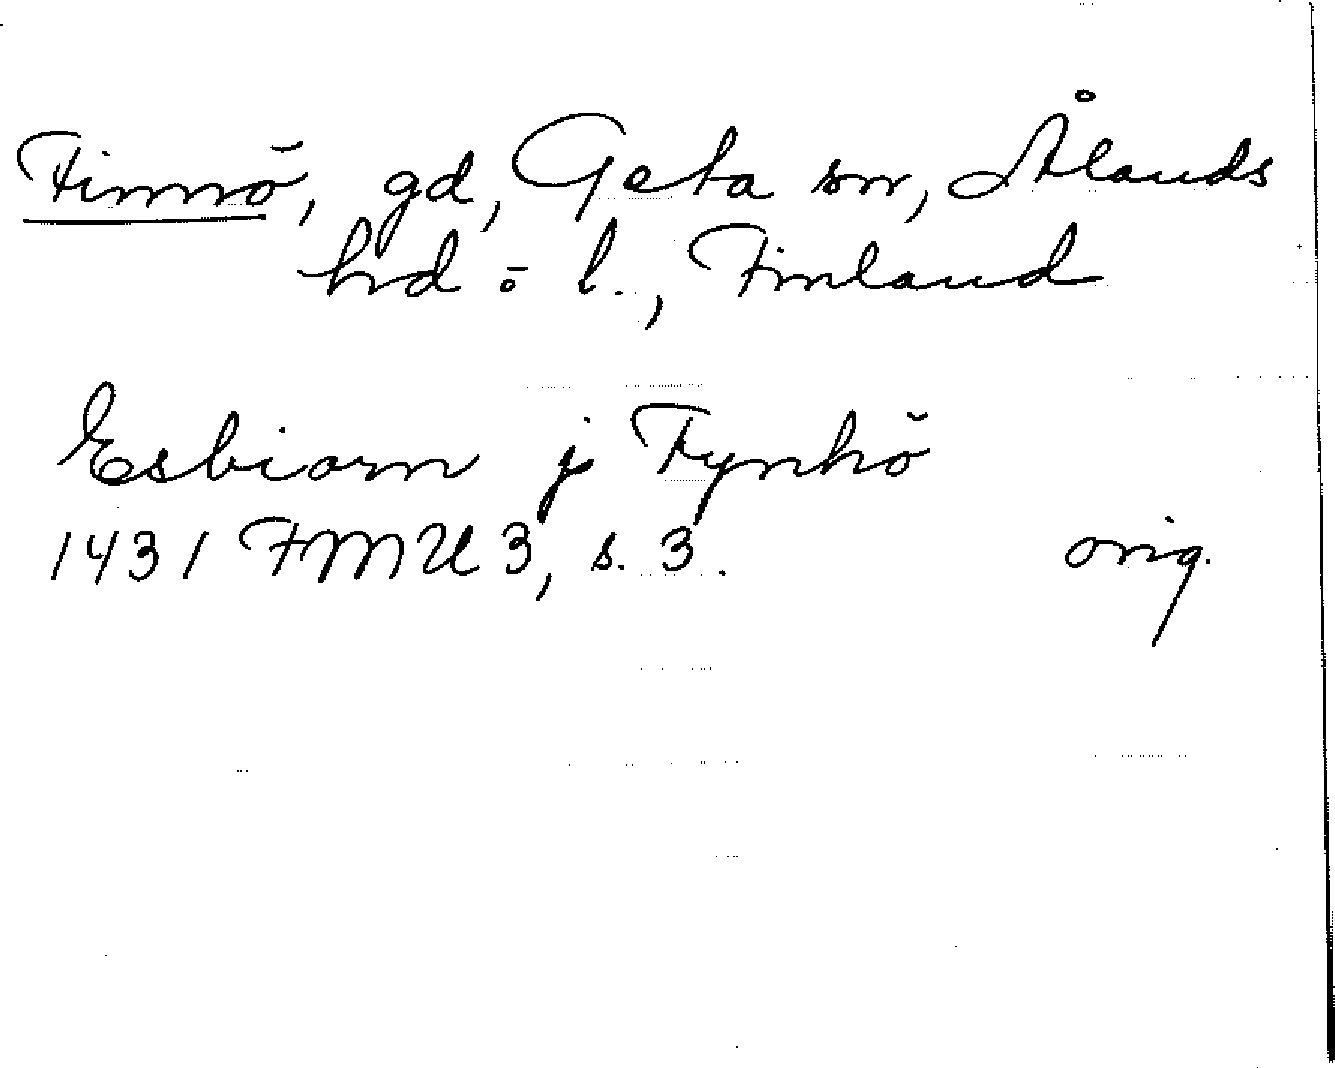 Finnö, gd, Geta sn, Ålands
hd o l., Finland
Esbiorn j Fynhö
1431 FMU 3, s. 3. orig.